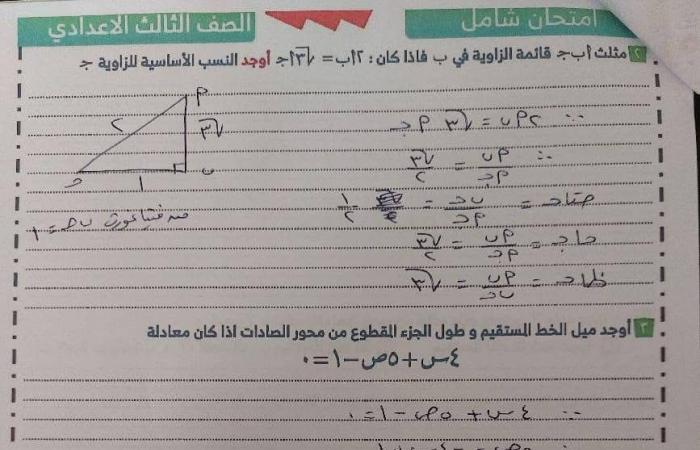 امتحان شامل
الصف الثالث الاعدادي
٢ مثلث أ ب جـ قائمة الزاوية في ب فاذا كان : ٢ أب = √٣ أجـ أوجد النسب الأساسية للزاوية جـ
∴ ٢ ٢ ب = √٣ ٢ جـ
∴ ٢ب / ٢جـ = √٣ / ٢
حتا جـ = ب جـ / ٢ جـ = ١ / ٢
حا جـ = ٢ب / ٢جـ = √٣ / ٢
ظا جـ = ٢ب / ب جـ = √٣
٢
٢
√٣
ب
١
جـ
من فيثاغورث ب جـ = ١
٣ أوجد ميل الخط المستقيم و طول الجزء المقطوع من محور الصادات اذا كان معادلة
٤س + ٥ص − ١ = ٠
∴ ٤س + ٥ص − ١ = ٠